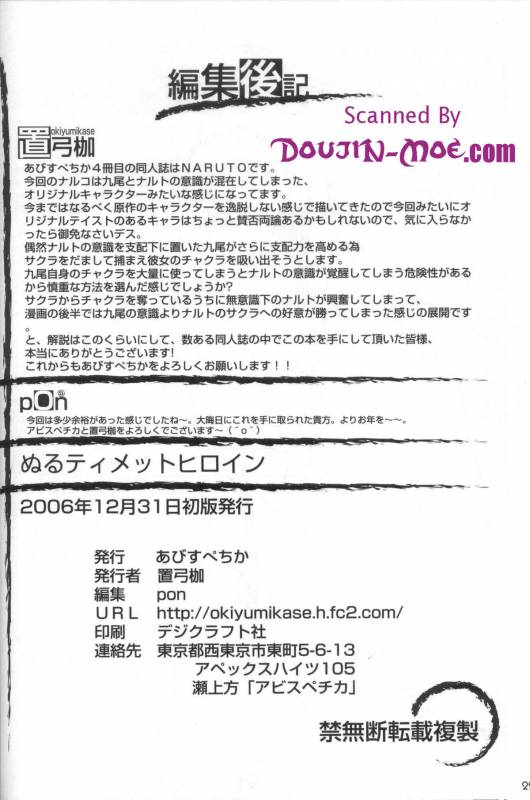 編集後記
Scanned By
DOUJIN-MOE.com
okiyumikase
置弓枷
あびすぺちか４冊目の同人誌はＮＡＲＵＴＯです。
今回のナルコは九尾とナルトの意識が混在してしまった、
オリジナルキャラクターみたいな感じになってます。
今まではなるべく原作のキャラクターを逸脱しない感じで描いてきたので今回みたいにオ
リジナルテイストのあるキャラはちょっと賛否両論あるかもしれないので、気に入らなか
ったら御免なさいデス。
偶然ナルトの意識を支配下に置いた九尾がさらに支配力を高める為
サクラをだまして捕まえ彼女のチャクラを吸い出そうとします。
九尾自身のチャクラを大量に使ってしまうとナルトの意識が覚醒してしまう危険性がある
から慎重な方法を選んだ感じでしょうか?
サクラからチャクラを奪っているうちに無意識下のナルトが興奮してしまって、
漫画の後半では九尾の意識よりナルトのサクラへの好意が勝ってしまった感じの展開です
。
と、解説はこのくらいにして、数ある同人誌の中でこの本を手にして頂いた皆様、
本当にありがとうございます!
これからもあびすぺちかをよろしくお願いします！！
pon@
今回は多少余裕があった感じでしたね～。大晦日にこれを手に取られた貴方。よりお年を～～。
アビスペチカと置弓枷をよろしくでございます～（＾o＾）
ぬるティメットヒロイン
2006年12月31日初版発行
発行　あびすぺちか
発行者　置弓枷
編集　pon
ＵＲＬ　http://okiyumikase.h.fc2.com/
印刷　デジクラフト社
連絡先　東京都西東京市東町5-6-13
アペックスハイツ105
瀬上方「アビスペチカ」
禁無断転載複製